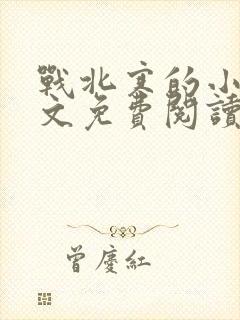 戰北寒的小
文免費閱讀
曾慶紅